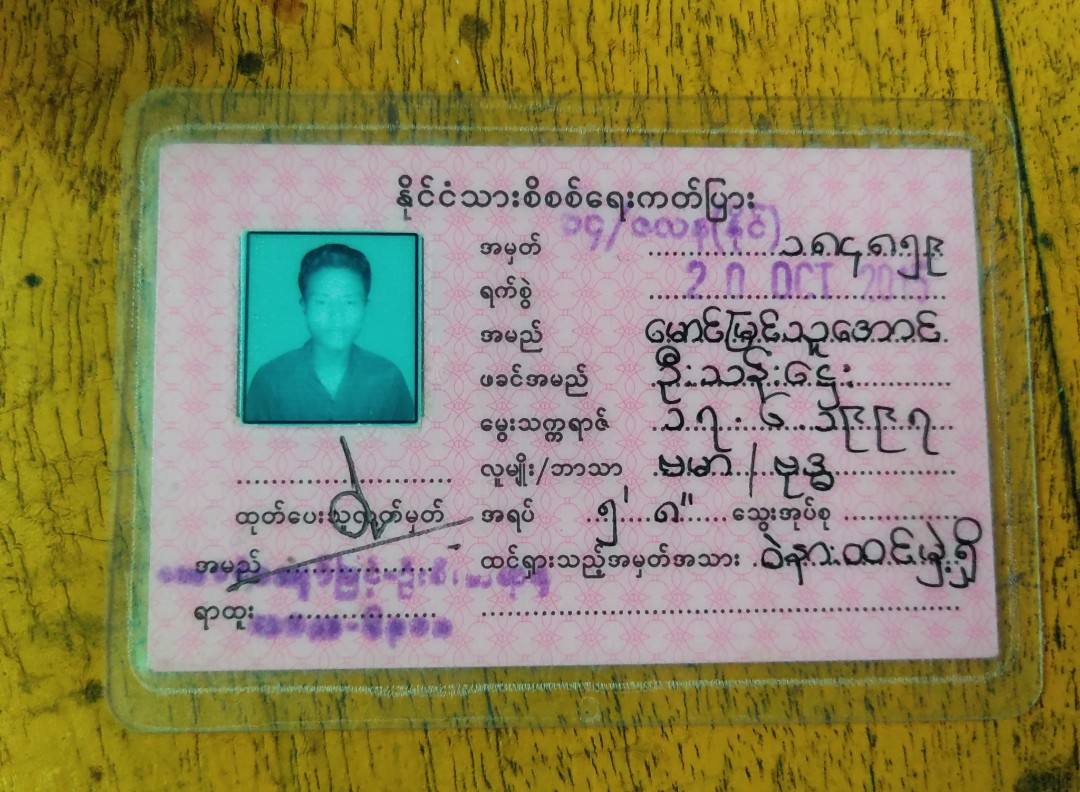 နိုင်ငံသားစိစစ်ရေးကတ်ပြား
၁၄/ဇလန(နိုင်)
အမှတ် ၁၈၄၈၅၉
ရက်စွဲ 20 OCT
အမည် မောင်မြင့်သူအောင်
ဖခင်အမည် ဦးသန်းဌေး
မွေးသက္ကရာဇ် ၁၇.၆.၁၉၉၇
လူမျိုး/ဘာသာ ဗမာ/ဗုဒ္ဓ
အရပ် ၅' ၈" သွေးအုပ်စု
ထင်ရှားသည့်အမှတ်အသား ဝဲနားထင်မှဲ့ရှိ
ထုတ်ပေးသူလက်မှတ်
အမည်
ရာထူး